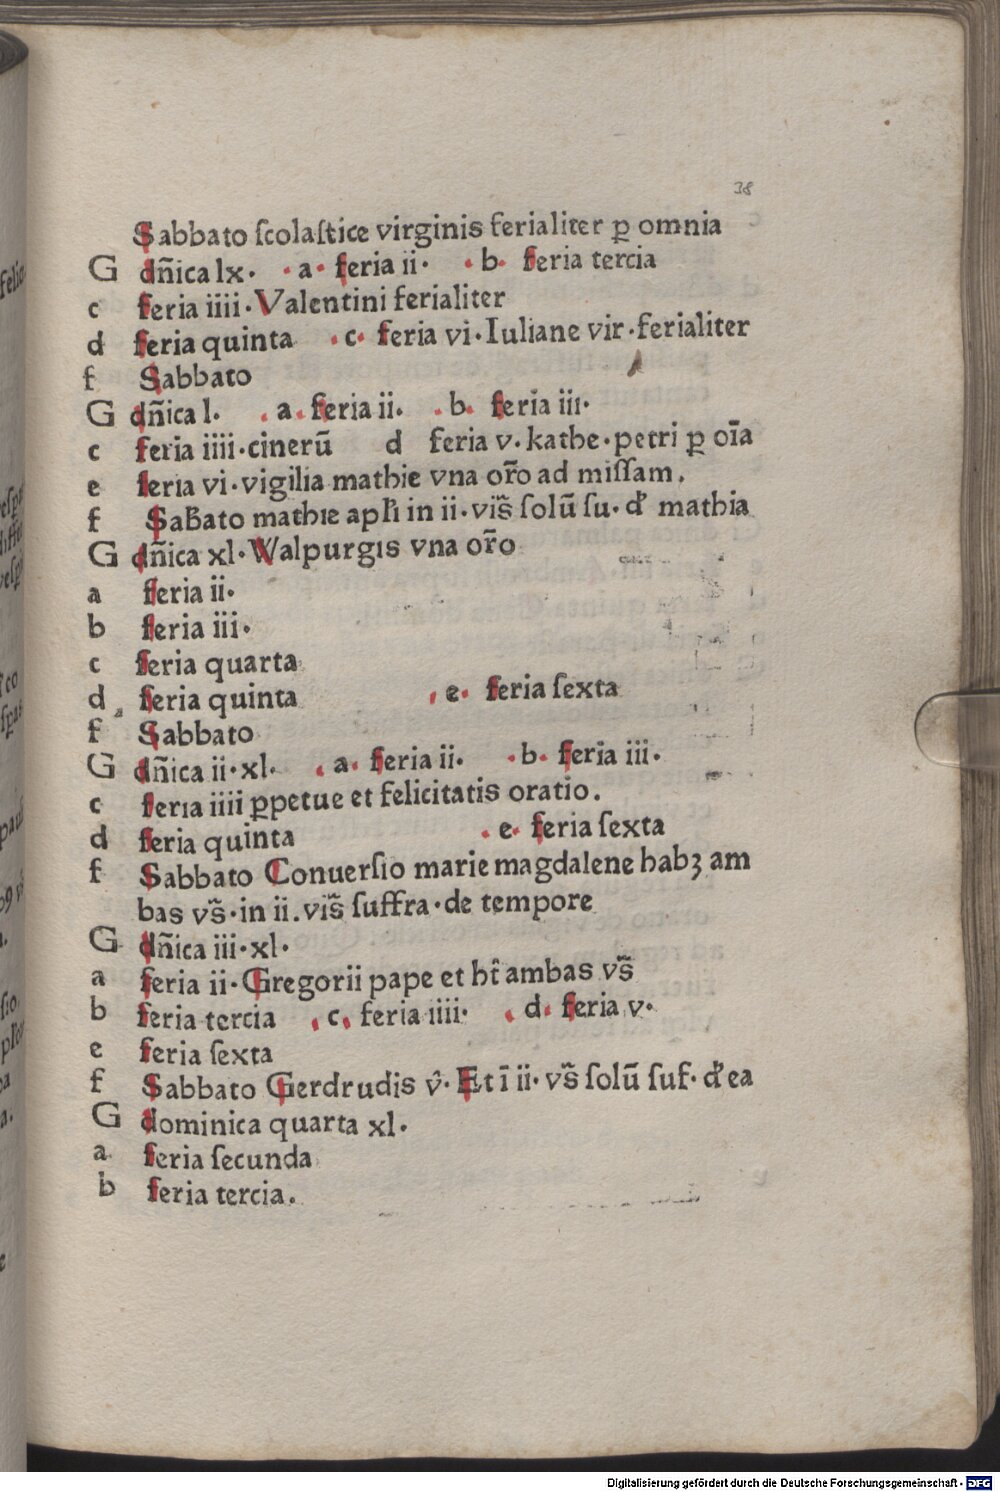 38
Sabbato ſcolaſtice virginis ferialiter ꝑ omnia
G dn̄ica lx. .a. feria ii. .b. feria tercia
c feria iiii.Valentini ferialiter
d feria quinta .c. feria vi.Iuliane vir.ferialiter
f Sabbato
G dn̄ica l. .a. feria ii. .b. feria iii.
c feria iiii.cinerū d feria v.kathe.petri ꝑ oīa
e feria vi.vigilia mathie vna or̄o ad miſſam.
f Sab̄ato mathie apl̄i in ii.vis̄ ſolū ſu.d' mathia
G dn̄ica xl.Walpurgis vna or̄o
a feria ii.
b feria iii.
c feria quarta
d feria quinta .e. feria ſexta
f Sabbato
G dn̄ica ii.xl. .a. feria ii. .b. feria iii.
c feria iiii ꝑpetue et felicitatis oratio.
d feria quinta .e. feria ſexta
f Sabbato Conuerſio marie magdalene habꝫ am
bas vs̄.in ii.vis̄ ſuffra.de tempore
G dn̄ica iii.xl.
a feria ii.Gregorii pape et ht̄ ambas vs̄
b feria tercia .c. feria iiii. .d. feria v.
e feria ſexta
f Sabbato Gerdrudis v̂.Et ī ii.vs̄ ſolū ſuf.d' ea
G dominica quarta xl.
a feria ſecunda
b feria tercia.
Digitalisierung gefördert durch die Deutsche Forschungsgemeinschaft - DFG